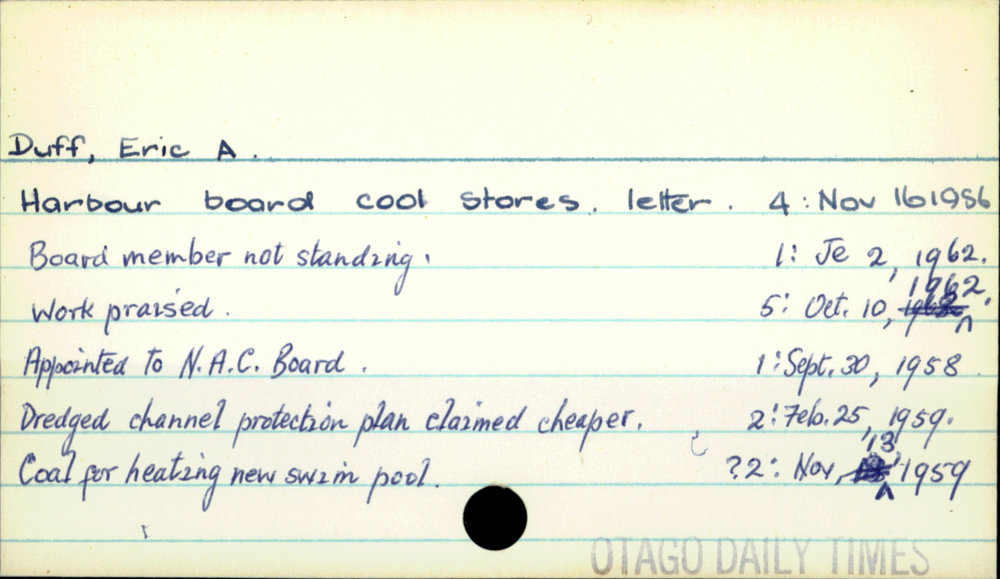 Duff, Eric A.
Harbour board cool stores. letter. 4: Nov 16 1956
Board member not standing. 1: Je 2, 1962.
Work praised. 5: Oct. 10, 1962.
Appointed to N.A.C. Board. 1: Sept. 30, 1958
Dredged channel protection plan claimed cheaper. 2: Feb. 25, 1959.
Coal for heating new swim pool. ?2: Nov, 13, 1959
OTAGO DAILY TIMES